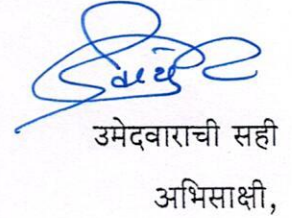 उमेदवाराची सही
अभिसाक्षी,